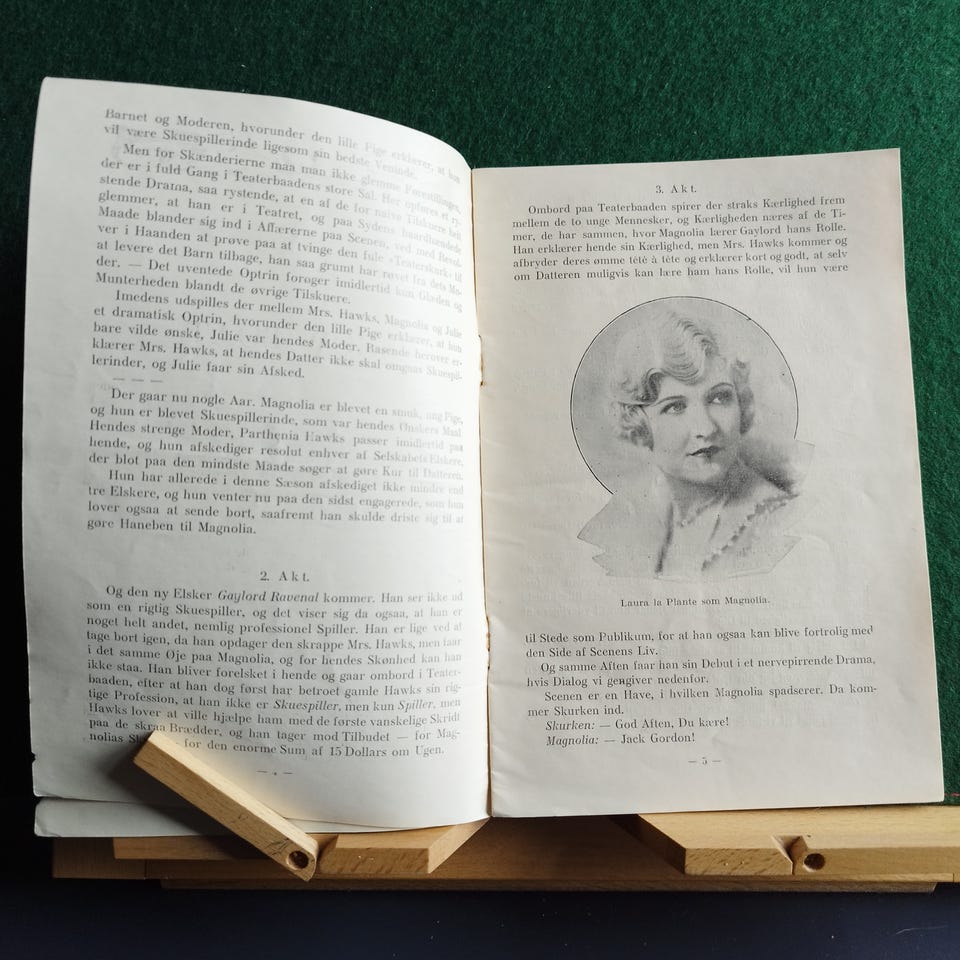 Barnet og Moderen, hvorunder den lille Pige erklærer, at hun
vil være Skuespillerinde ligesom sin bedste Veninde.
Men for Skænderierne maa man ikke glemme Forestillingen,
der er i fuld Gang i Teaterbaadens store Sal. Her opføres et ry-
stende Drama, saa rystende, at en af de for naive Tilskuere helt
glemmer, at han er i Teatret, og paa Sydens haardhændede
Maade blander sig ind i Affærerne paa Scenen, ved med Revol-
ver i Haanden at prøve paa at tvinge den fule «Teaterskurk» til
at levere det Barn tilbage, han saa grumt har røvet fra dets Mo-
der. — Det uventede Optrin forøger imidlertid kun Glæden og
Munterheden blandt de øvrige Tilskuere.
Imedens udspilles der mellem Mrs. Hawks, Magnolia og Julie
et dramatisk Optrin, hvorunder den lille Pige erklærer, at hun
bare vilde ønske, Julie var hendes Moder. Rasende herover er-
klærer Mrs. Hawks, at hendes Datter ikke skal omgaas Skuespil-
lerinder, og Julie faar sin Afsked.
— — —
Der gaar nu nogle Aar. Magnolia er blevet en smuk, ung Pige,
og hun er blevet Skuespillerinde, som var hendes Ønskers Maal.
Hendes strenge Moder, Parthenia Hawks passer imidlertid paa
hende, og hun afskediger resolut enhver af Selskabets Elskere,
der blot paa den mindste Maade søger at gøre Kur til Datteren.
Hun har allerede i denne Sæson afskediget ikke mindre end
tre Elskere, og hun venter nu paa den sidst engagerede, som hun
lover ogsaa at sende bort, saafremt han skulde driste sig til at
gøre Haneben til Magnolia.
2. Akt.
Og den ny Elsker Gaylord Ravenal kommer. Han ser ikke ud
som en rigtig Skuespiller, og det viser sig da ogsaa, at han er
noget helt andet, nemlig professionel Spiller. Han er lige ved at
tage bort igen, da han opdager den skrappe Mrs. Hawks, men faar
i det samme Øje paa Magnolia, og for hendes Skønhed kan han
ikke staa. Han bliver forelsket i hende og gaar ombord i Teater-
baaden, efter at han dog først har betroet gamle Hawks sin rig-
tige Profession, at han ikke er Skuespiller, men kun Spiller, men
Hawks lover at ville hjælpe ham med de første vanskelige Skridt
paa de skraa Brædder, og han tager mod Tilbudet — for Mag-
nolias for den enorme Sum af 15 Dollars om Ugen.
— 4 —
3. Akt.
Ombord paa Teaterbaaden spirer der straks Kærlighed frem
mellem de to unge Mennesker, og Kærligheden næres af de Ti-
mer, de har sammen, hvor Magnolia lærer Gaylord hans Rolle.
Han erklærer hende sin Kærlighed, men Mrs. Hawks kommer og
afbryder deres ømme tête à tête og erklærer kort og godt, at selv
om Datteren muligvis kan lære ham hans Rolle, vil hun være
Laura la Plante som Magnolia.
til Stede som Publikum, for at han ogsaa kan blive fortrolig med
den Side af Scenens Liv.
Og samme Aften faar han sin Debut i et nervepirrende Drama,
hvis Dialog vi gengiver nedenfor.
Scenen er en Have, i hvilken Magnolia spadserer. Da kom-
mer Skurken ind.
Skurken: — God Aften, Du kære!
Magnolia: — Jack Gordon!
— 5 —